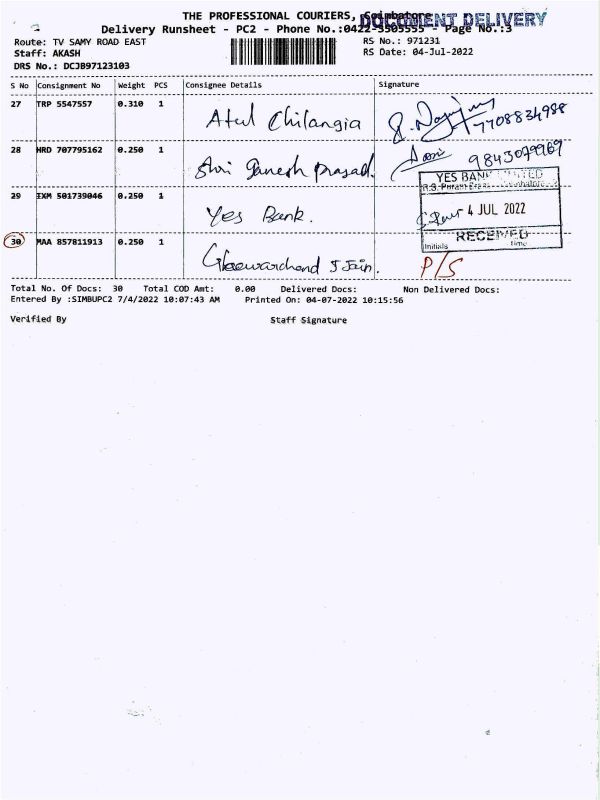 THE PROFESSIONAL COURIERS, Coimbatore
DOCUMENT DELIVERY
Delivery Runsheet - PC2 - Phone No.:0422-5505555 - Page No.:3
Route: TV SAMY ROAD EAST
RS No.: 971231
Staff: AKASH
RS Date: 04-Jul-2022
DRS No.: DCJB97123103
S No Consignment No Weight PCS Consignee Details Signature
27 TRP 5547557 0.310 1 Atul Chilangia
7708834988
28 HRD 707795162 0.250 1 Shri Ganesh Prasad. 9843079969
29 IXM 501739046 0.250 1 Yes Bank.
YES BANK LIMITED
R.S. Puram Coimbatore
4 JUL 2022
RECEIVED
Initials time
30 MAA 857811913 0.250 1 J Jain. P/S
Total No. Of Docs: 30 Total COD Amt: 0.00 Delivered Docs: Non Delivered Docs:
Entered By :SIMBUPC2 7/4/2022 10:07:43 AM Printed On: 04-07-2022 10:15:56
Verified By Staff Signature